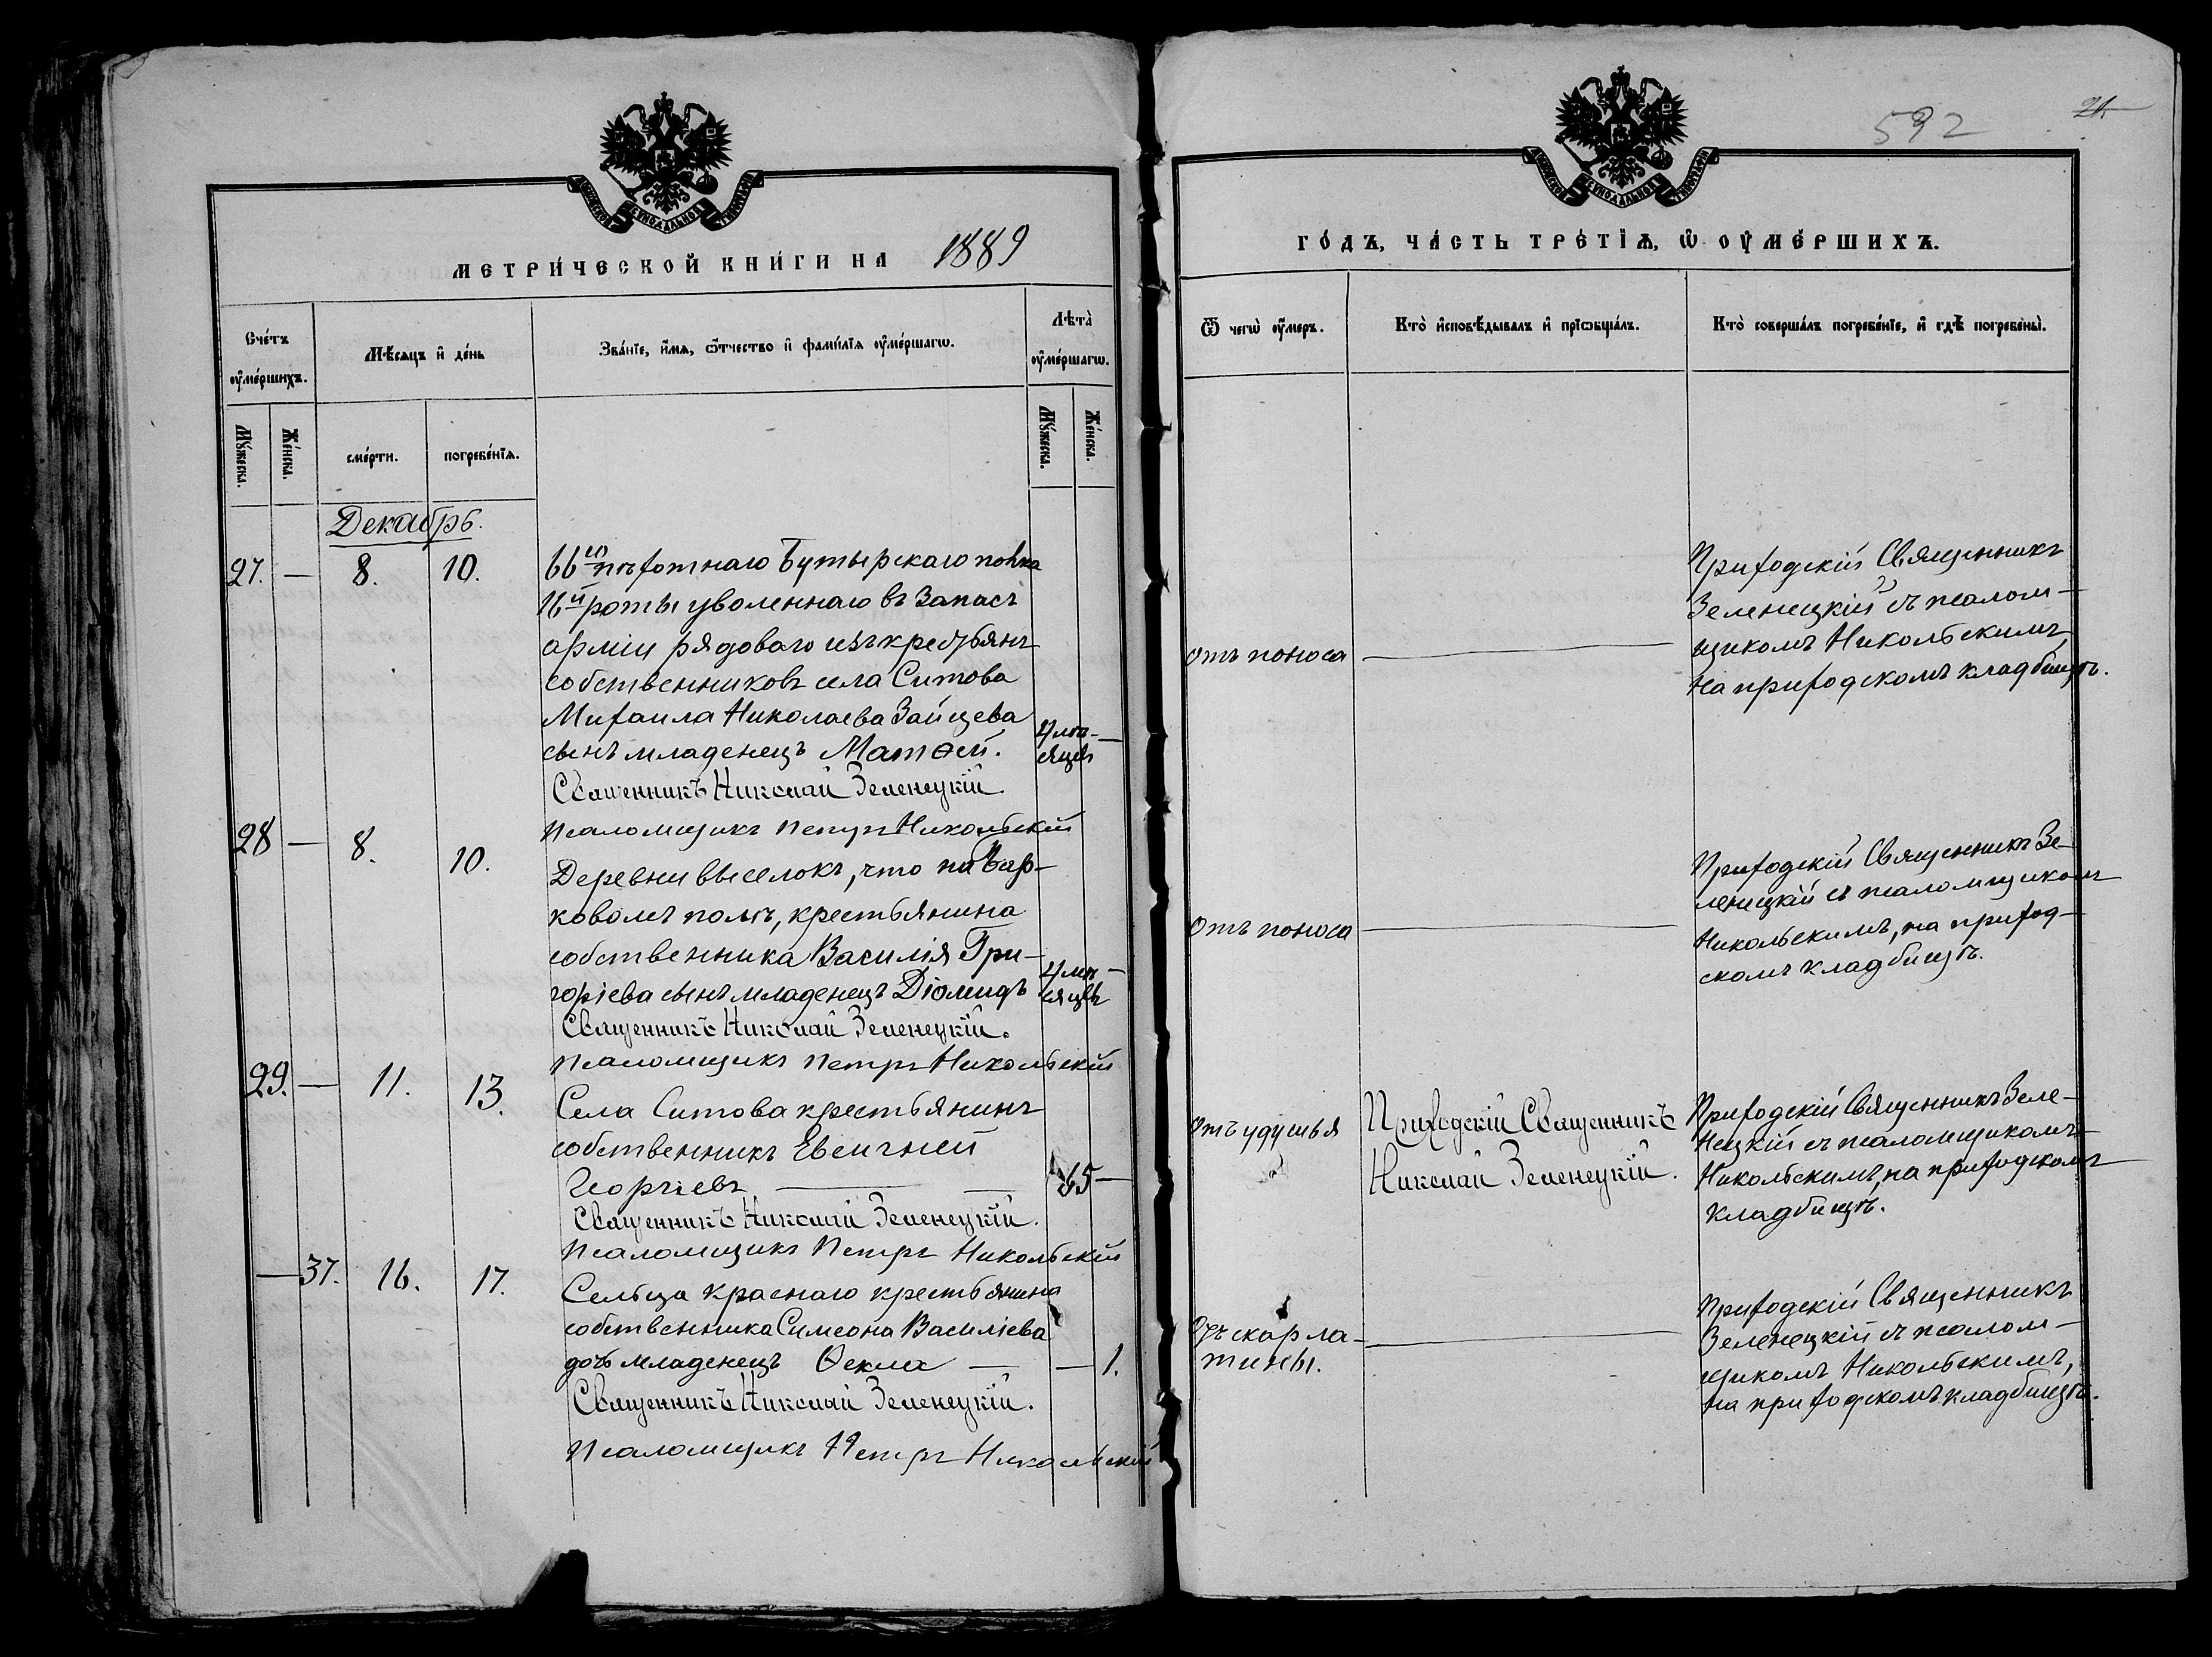 МЕТРИ́ЧЕСКОЙ КНИ́ГИ НА 1889
Сче́тъ ᲂу҆ме́ршихъ.
Мѣ́сяцъ и҆ де́нь
Зва́нїе, и҆́мѧ, ѻ҆́тчество и҆ фами́лїѧ ᲂу҆ме́ршагѡ.
Лѣта̀ ᲂу҆ме́ршагѡ.
Мꙋ́жеска.
Же́нска.
сме́рти.
погребе́нїѧ.
Мꙋ́жеска.
Же́нска.
Декабрь.
27. — 8. 10.
66го пѣхотнаго Бутырскаго полка
16й роты уволеннаго въ запасъ
арміи рядоваго изъ крестьянъ
собственниковъ села Ситова
Михаила Николаева Зайцева
сынъ младенецъ Матѳей.
4 мѣ-
сяцев —
Священникъ Николай Зеленецкій.
Псаломщикъ Петръ Никольскій
28 — 8. 10.
Деревни выселокъ, что на Бар-
ковомъ полѣ, крестьянина
собственника Василія Гри-
горіева сынъ младенецъ Діомидъ
4 мѣ-
сяцев
Священникъ Николай Зеленецкій.
Псаломщикъ Петръ Никольскій
29. — 11. 13.
Села Ситова крестьянинъ
собственникъ Евсигней
Георгіевъ — — 65 —
Священникъ Николай Зеленецкій.
Псаломщикъ Петръ Никольскій
— 37. 16. 17.
Сельца Краснаго крестьянина
собственника Симеона Василіева
дочь младенецъ Ѳекла — — 1.
Священникъ Николай Зеленецкій.
Псаломщикъ Петръ Никольскій
592
21.
ГО́ДЪ, ЧА́СТЬ ТРЕ́ТЇѦ, Ѡ҆ ОУ҆МЕ́РШИХЪ.
Ѿ чегѡ̀ ᲂу҆́меръ.
Кто̀ и҆сповѣ́дывалъ и҆ прїѡбща́лъ.
Кто̀ соверша́лъ погребе́нїе, и҆ гдѣ̀ погребены̀.
отъ поноса —
Приходскій Священникъ
Зеленецкій съ псалом-
щикомъ Никольскимъ,
на приходскомъ кладбищѣ.
отъ поноса —
Приходскій Священникъ Зе-
ленецкій съ псаломщикомъ
Никольскимъ, на приход-
скомъ кладбищѣ.
отъ удушья
Приходскій Священникъ
Николай Зеленецкій.
Приходскій Священникъ Зеле-
нецкій съ псаломщикомъ
Никольскимъ, на приходскомъ
кладбищѣ.
Отъ скарла-
тины. —
Приходскій Священникъ
Зеленецкій съ псалом-
щикомъ Никольскимъ,
на приходскомъ кладбищѣ.